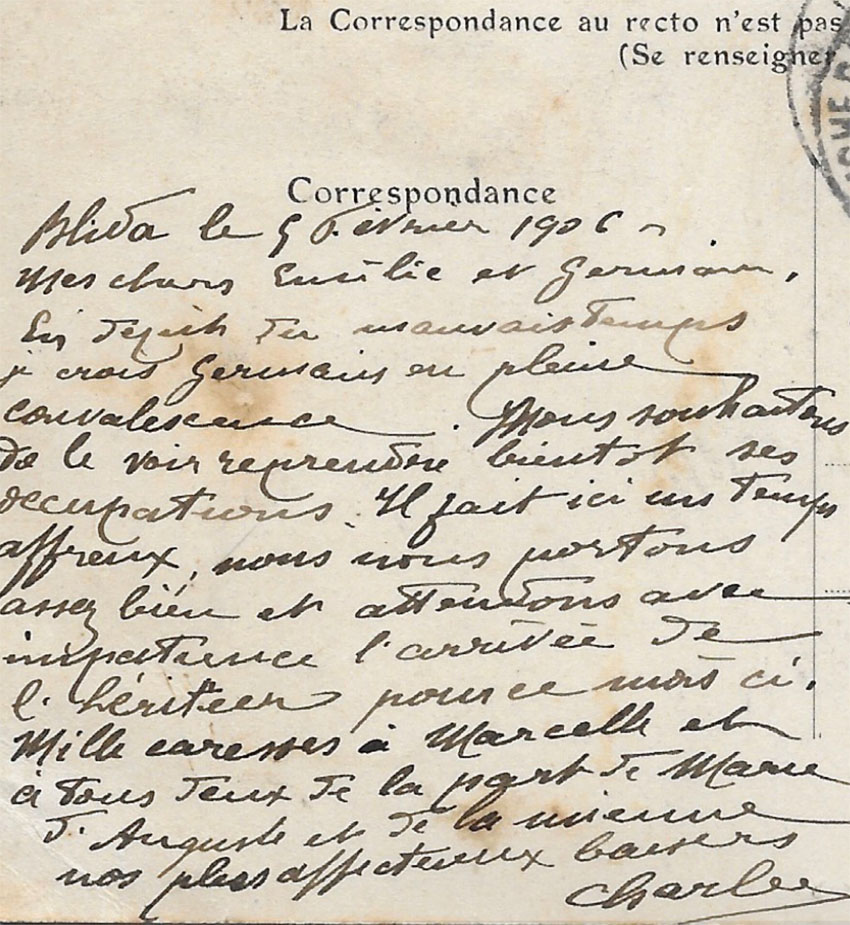 La Correspondance au recto n'est pas
(Se renseigner
Correspondance
Blida le 5 Février 1906
Mes chers Emilie et Germain,
En dépit du mauvais temps
je crois Germain en pleine
convalescence. Nous souhaitons
de le voir reprendre bientot ses
occupations. Il fait ici un temps
affreux, nous nous portons
assez bien et attendons avec
impatience l'arrivée de
l'héritier pour ce mois ci.
Mille caresses à Marcelle et
à tous deux de la part de Marie
d'Auguste et de la mienne
nos plus affectueux baisers
Charles